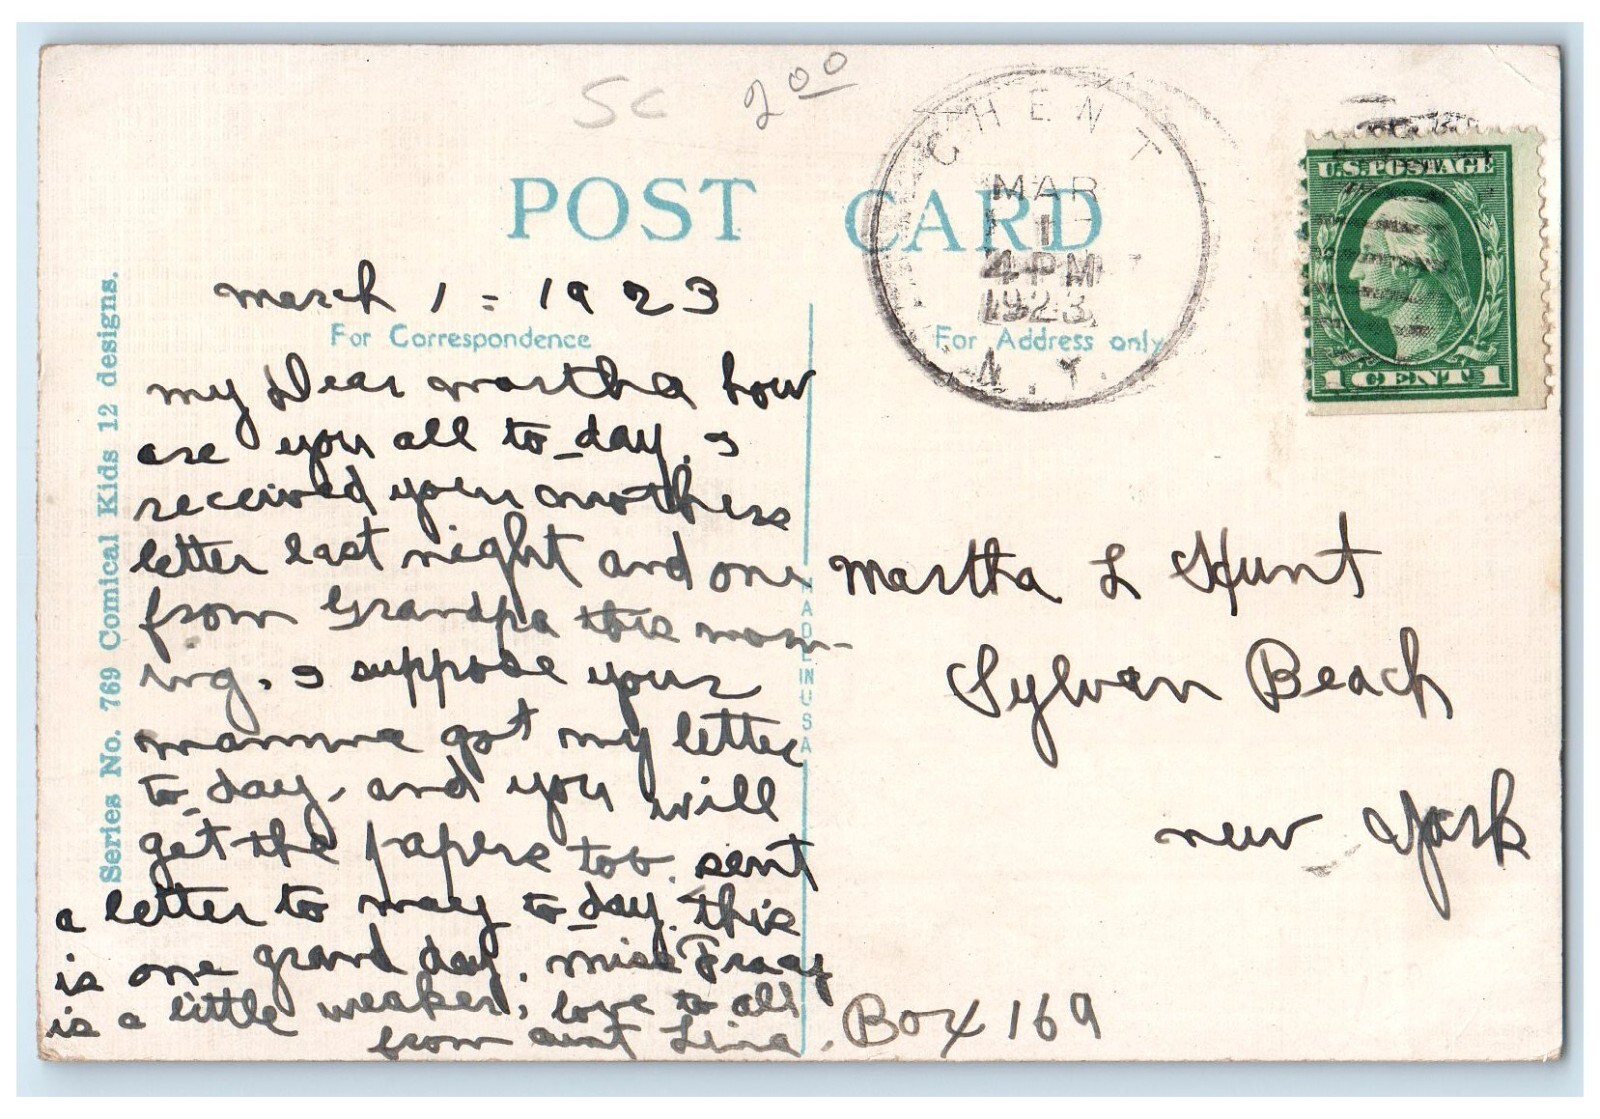 5c 2.00
POST CARD
GHENT
MAR
1
4 PM
1923
N.Y.
U.S. POSTAGE
1 CENT 1
march 1 = 1923
For Correspondence
For Address only
my Dear martha how
are you all to-day. I
received your mothers
letter last night and one
from Grandpa this morn-
ing. I suppose your
mamma got my letter
to-day, and you will
get the papers too. sent
a letter to may to-day. this
is one grand day. miss
is a little weaker, love to all
from aunt Lina.
martha L Hunt
Sylvan Beach
new York
Box 169
MADE IN USA
Series No. 769 Comical Kids 12 designs.